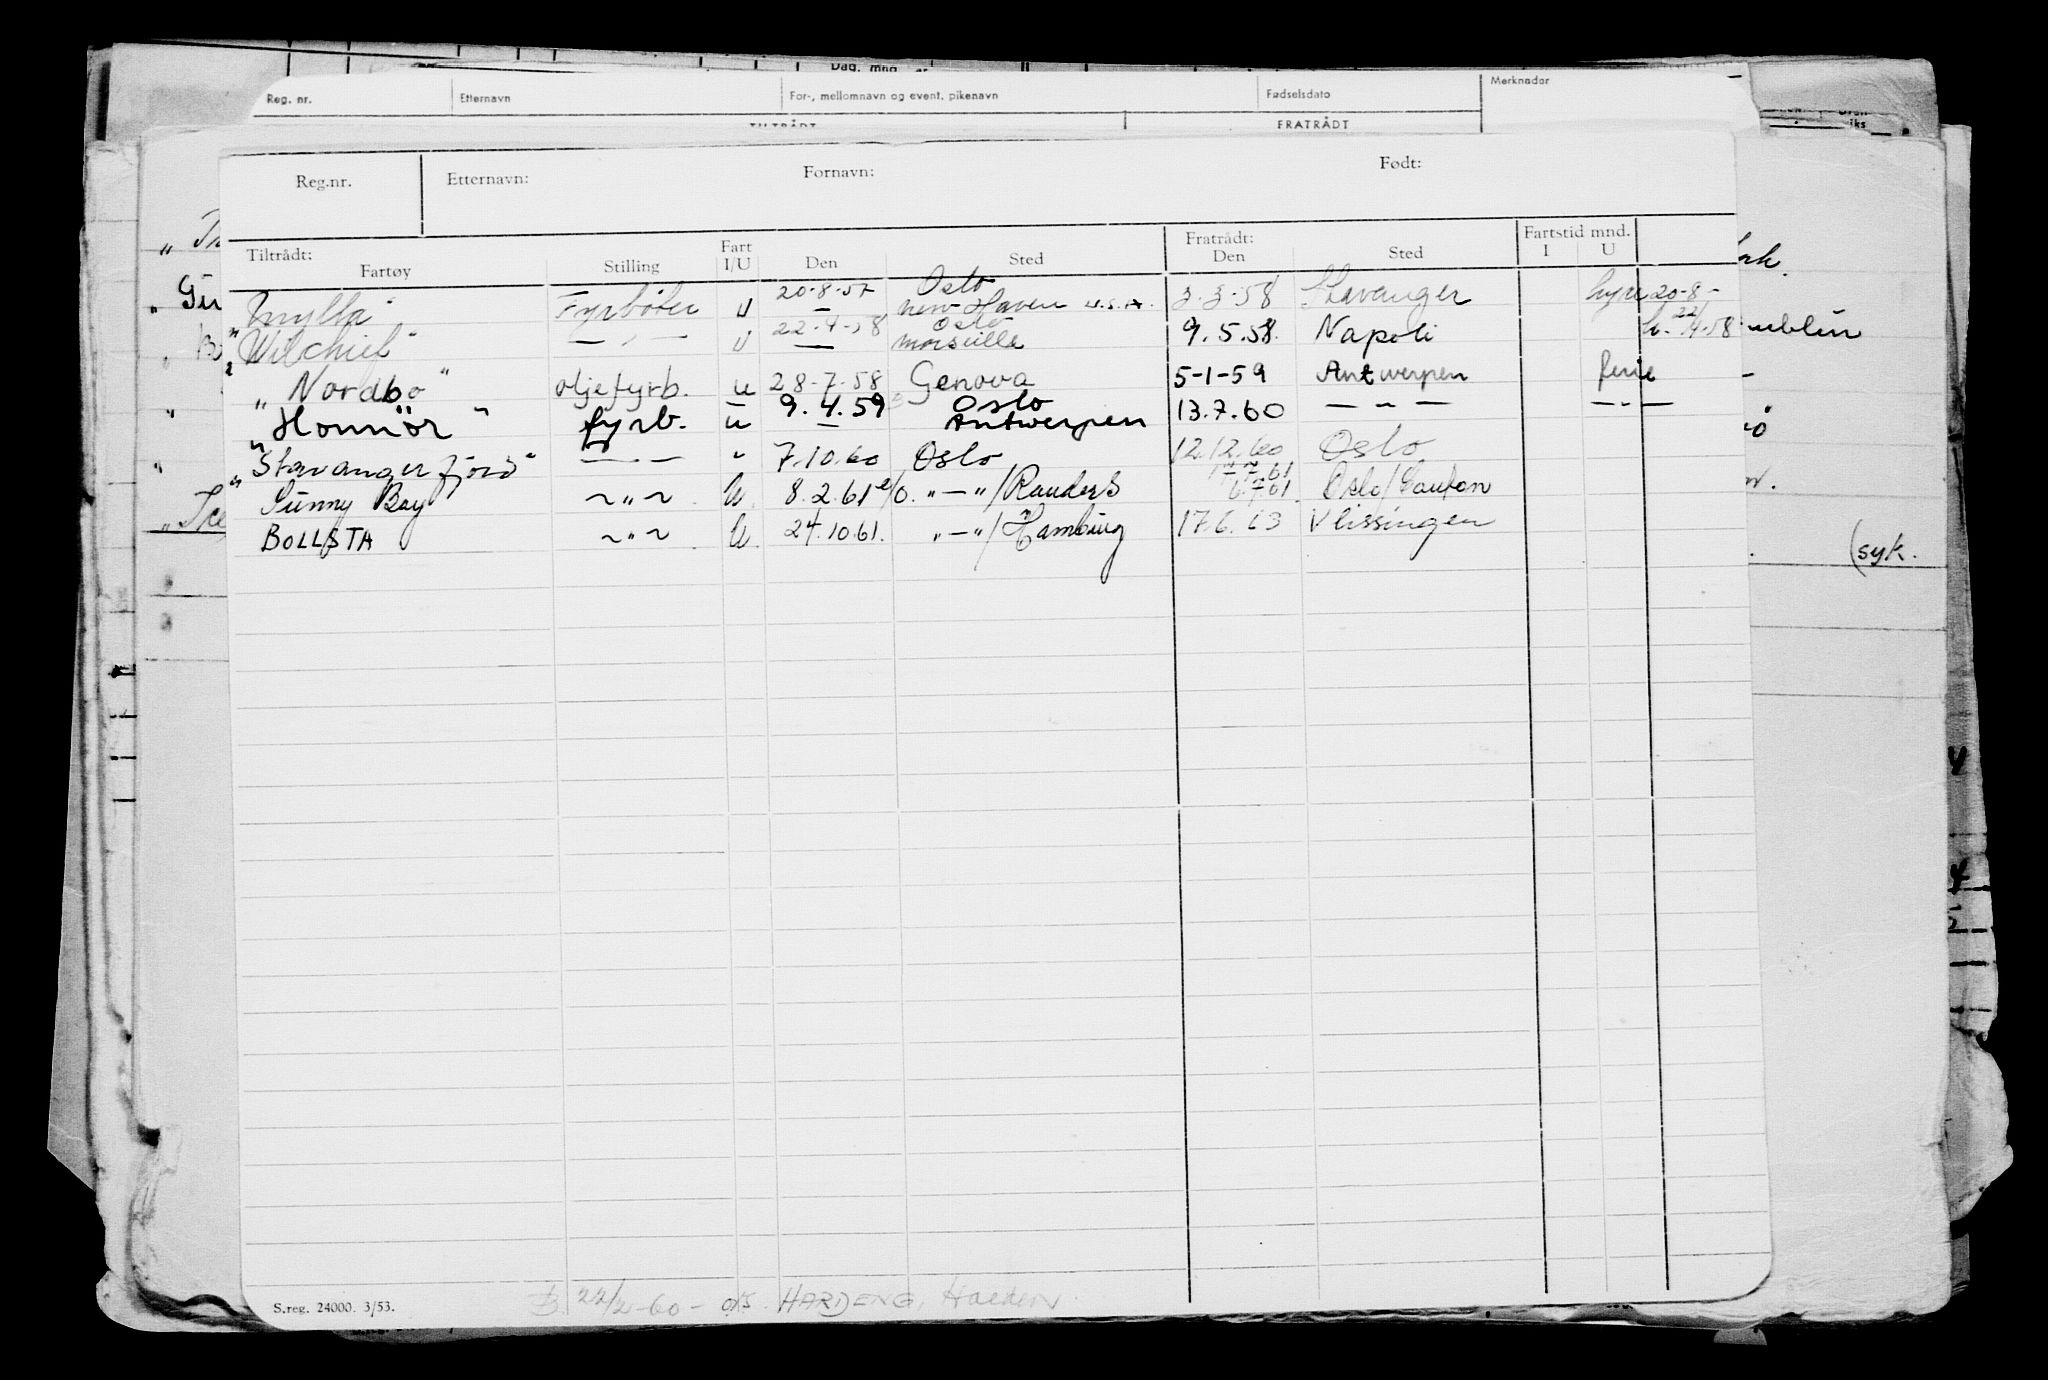 Dag, mng.
Reg. nr. Etternavn For-, mellomnavn og event. pikenavn Fødselsdato Merknader
TILTRÅDT FRATRÅDT
Reg.nr. Etternavn: Fornavn: Født:
Tiltrådt: Fartøy Stilling Fart I/U Den Sted Fratrådt: Den Sted Fartstid mnd. I U
Oslo
Fyrbøter U 20-8-57 New Haven U.S.A. 3-3-58 Stavanger hyre 20-8-
Oslo
"Wilchief" — " — U 22-4-58 Marseille 9.5.58. Napoli h. 22/4-58
"Nordbo" oljefyrb. u 28-7-58 Genova 5-1-59 Antwerpen ferie
Oslo
"Honnör" fyrb. u 9.4.59 Antwerpen 13.7.60 — " — — " —
"Stavangerfjord" — — " 7.10.60 Oslo 12.12.60 Oslo
17.7.61
Sunny Bay ~ " ~ U. 8.2.61 e/o. " — " / Randers 6.7.61 Oslo/Canton
BOLLSTA ~ " ~ U. 24.10.61. " — " / Hamburg 17.6.63 Vlissingen
(syk.
S.reg. 24000. 3/53. 22/2-60 - HARDENG, Halden